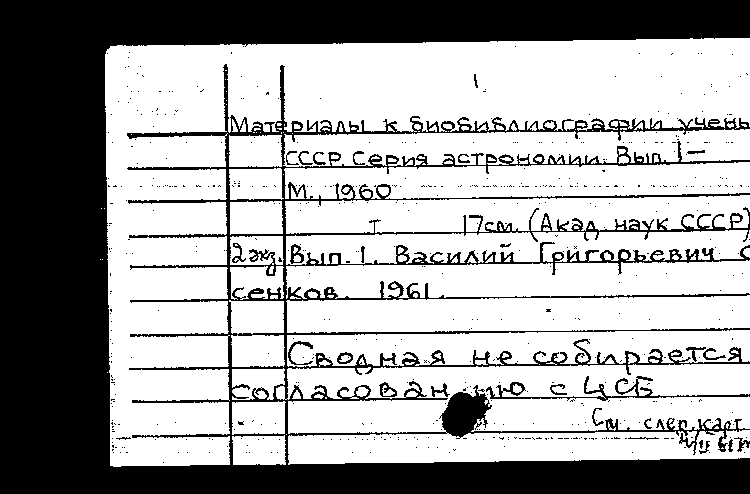 1
Материалы к биобиблиографии учень
СССР. Серия астрономии. Вып. 1—
М., 1960
т 17см. (Акад. наук СССР)
2 экз. Вып. 1. Василий Григорьевич
сенков. 1961.
Сводная не собирается
согласован ию с ЦСБ
См. след. карт